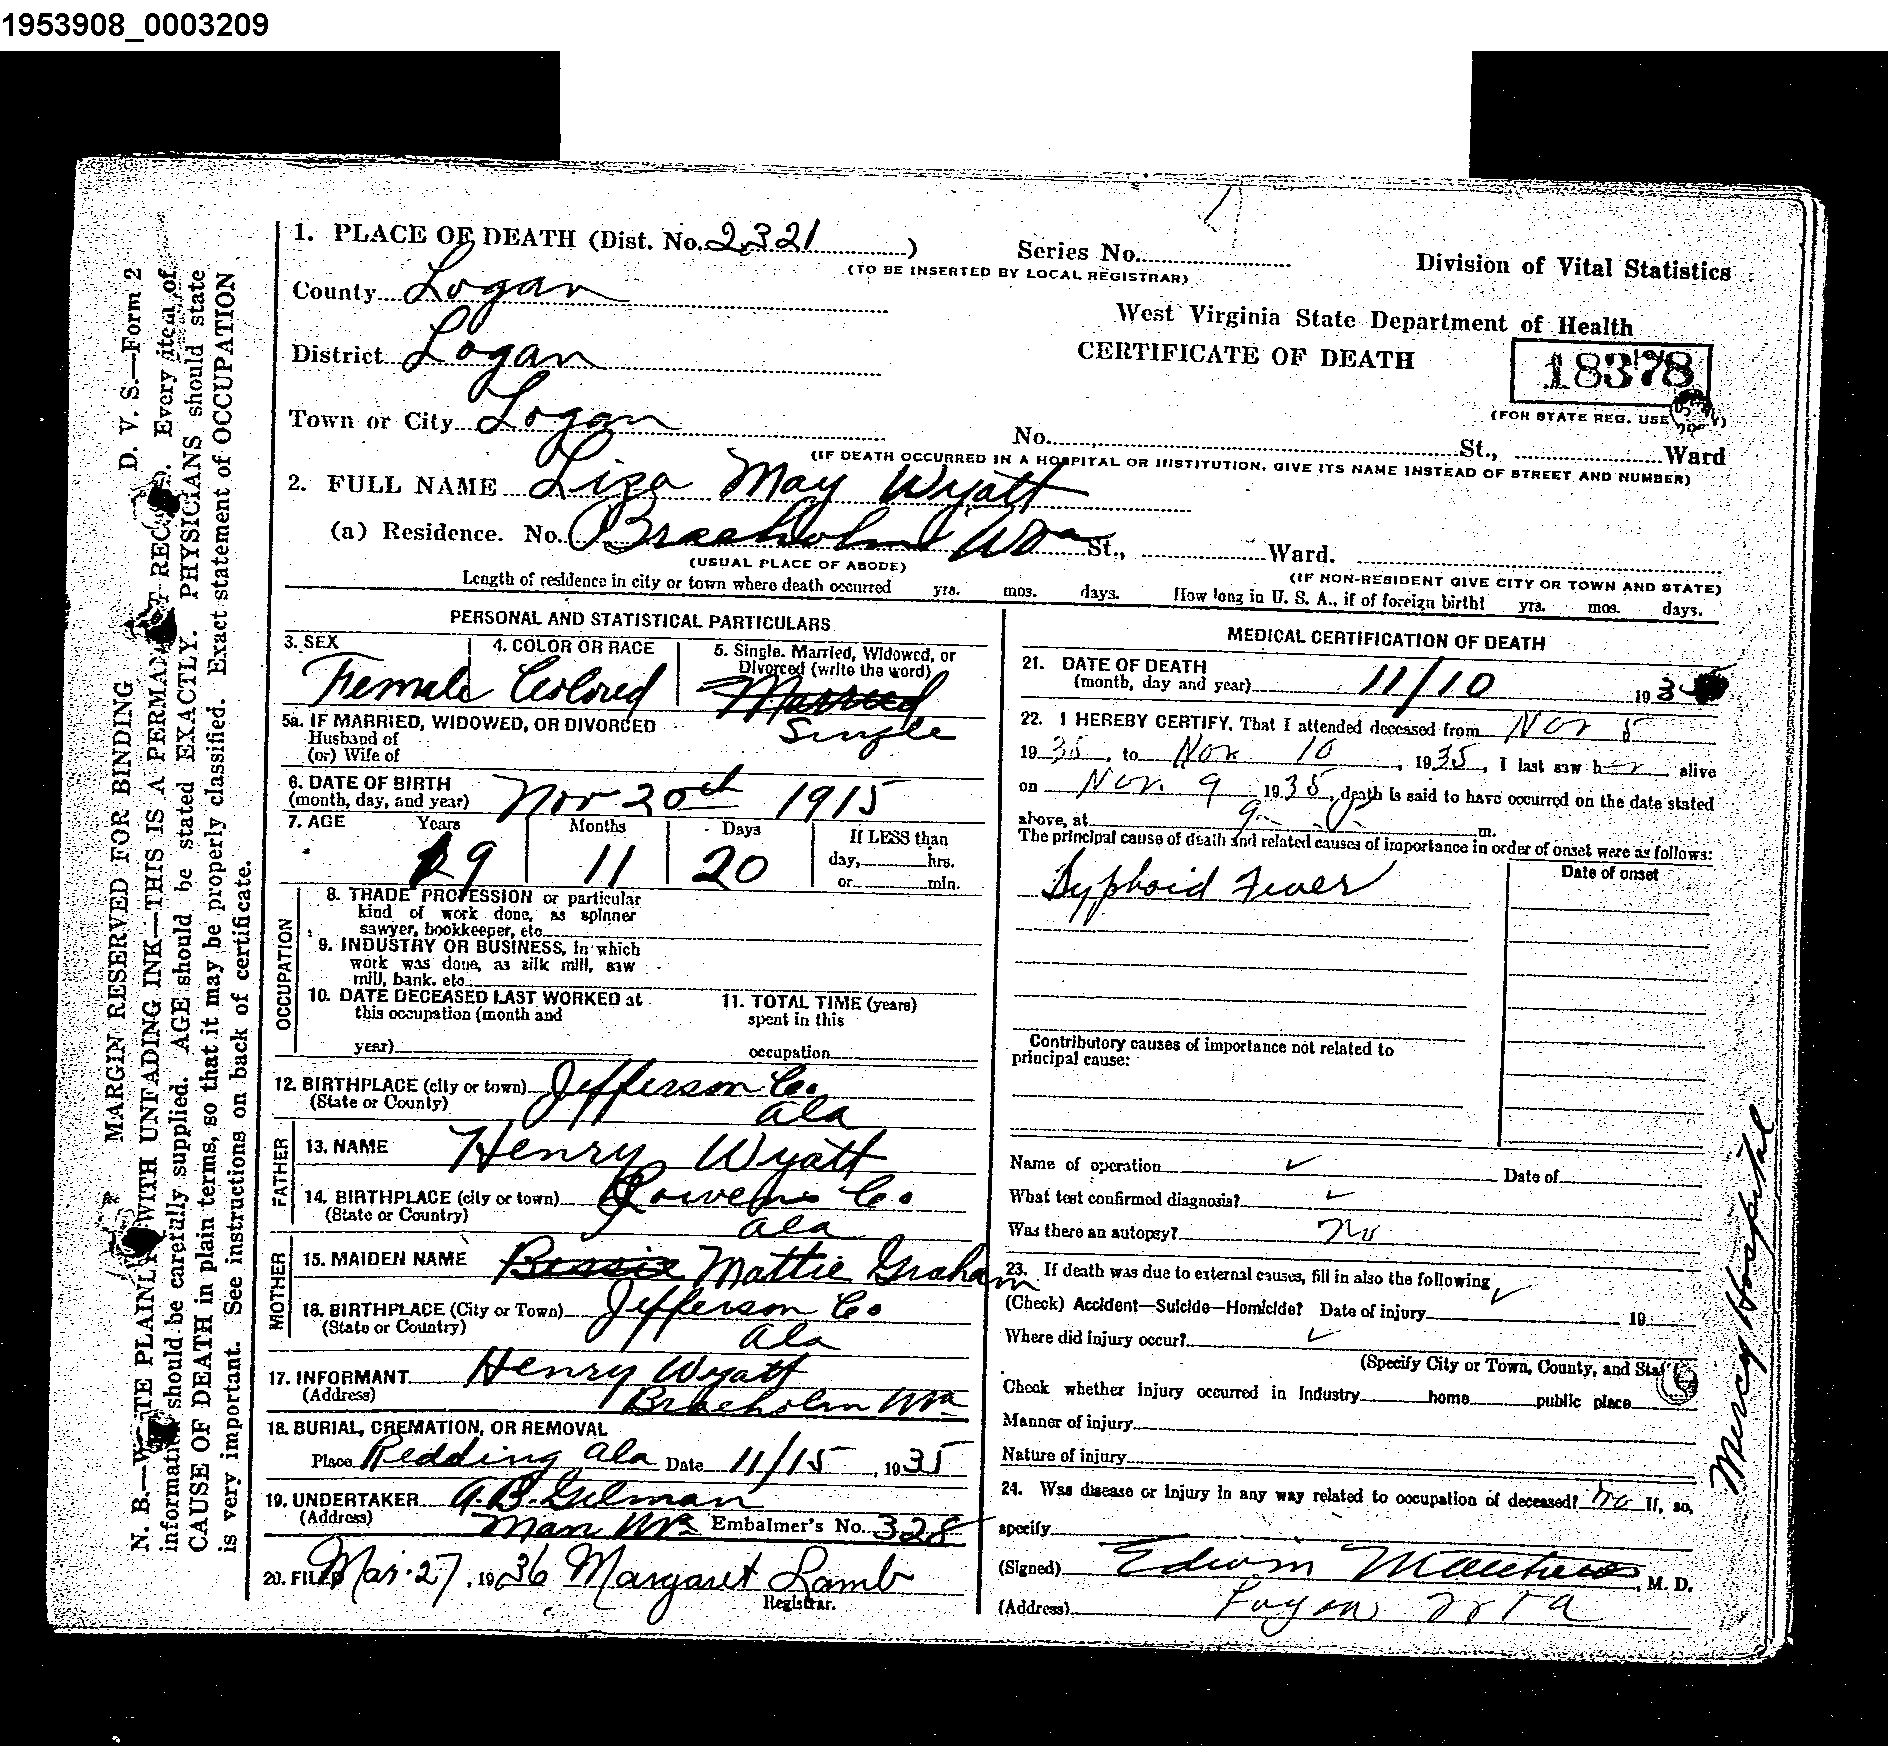 1953908_0003209
1. PLACE OF DEATH (Dist. No. 2321)
Series No.
(TO BE INSERTED BY LOCAL REGISTRAR)
Division of Vital Statistics
County Logan
West Virginia State Department of Health
District Logan
CERTIFICATE OF DEATH
18378
(FOR STATE REG. USE
Town or City Logan
No. St., Ward
(IF DEATH OCCURRED IN A HOSPITAL OR INSTITUTION, GIVE ITS NAME INSTEAD OF STREET AND NUMBER)
2. FULL NAME Liza May Wyatt
(a) Residence. No. Braeholm WVa St., Ward.
(USUAL PLACE OF ABODE)
(IF NON-RESIDENT GIVE CITY OR TOWN AND STATE)
Length of residence in city or town where death occurred yrs. mos. days. How long in U. S. A., if of foreign birth? yrs. mos. days.
PERSONAL AND STATISTICAL PARTICULARS
3. SEX
Female
4. COLOR OR RACE
Colored
5. Single, Married, Widowed, or
Divorced (write the word)
Married
Single
5a. IF MARRIED, WIDOWED, OR DIVORCED
Husband of
(or) Wife of
6. DATE OF BIRTH
(month, day, and year) Nov 20th 1915
7. AGE Years Months Days If LESS than
19 11 20 day, hrs.
or min.
OCCUPATION
8. TRADE PROFESSION or particular
kind of work done, as spinner
sawyer, bookkeeper, etc.
9. INDUSTRY OR BUSINESS, in which
work was done, as silk mill, saw
mill, bank, etc.
10. DATE DECEASED LAST WORKED at
this occupation (month and
year)
11. TOTAL TIME (years)
spent in this
occupation
12. BIRTHPLACE (city or town) Jefferson Co.
(State or County) Ala
FATHER
13. NAME Henry Wyatt
14. BIRTHPLACE (city or town) Co.
(State or Country) Ala
MOTHER
15. MAIDEN NAME Bessie Mattie Graham
16. BIRTHPLACE (City or Town) Jefferson Co
(State or Country) Ala
17. INFORMANT Henry Wyatt
(Address) Braeholm WVa
18. BURIAL, CREMATION, OR REMOVAL
Place Redding Ala Date 11/15, 1935
19. UNDERTAKER A.B. Gilman
(Address) Man WVa Embalmer's No. 328
20. FILED Mar. 27, 1936 Margaret Lamb
Registrar.
MEDICAL CERTIFICATION OF DEATH
21. DATE OF DEATH
(month, day and year) 11/10 193
22. I HEREBY CERTIFY, That I attended deceased from Nov 5
1935, to Nov. 10, 1935, I last saw her alive
on Nov. 9 1935, death is said to have occurred on the date stated
above, at 9 P m.
The principal cause of death and related causes of importance in order of onset were as follows:
Date of onset
Typhoid Fever
Contributory causes of importance not related to
principal cause:
Name of operation ✓ Date of
What test confirmed diagnosis? ✓
Was there an autopsy? No
23. If death was due to external causes, fill in also the following ✓
(Check) Accident—Suicide—Homicide? Date of injury 19
Where did injury occur? ✓
(Specify City or Town, County, and Sta
Check whether injury occurred in Industry home public place
Manner of injury
Nature of injury
24. Was disease or injury in any way related to occupation of deceased? no If, so,
specify
(Signed) Edwin Matthews, M. D.
(Address) Logan W Va
Mercy Hospital
MARGIN RESERVED FOR BINDING D. V. S.—Form 2
N. B.—WRITE PLAINLY WITH UNFADING INK—THIS IS A PERMANENT RECORD. Every item of
information should be carefully supplied. AGE should be stated EXACTLY. PHYSICIANS should state
CAUSE OF DEATH in plain terms, so that it may be properly classified. Exact statement of OCCUPATION
is very important. See instructions on back of certificate.